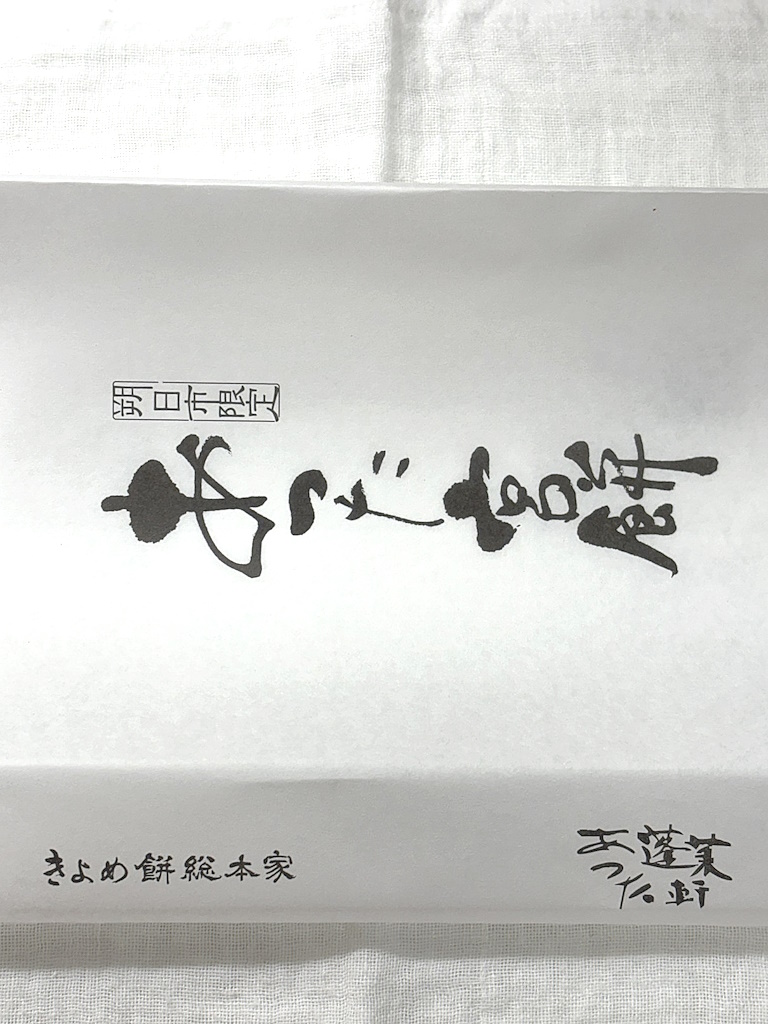 朔日市限定
あつた宮餅
きよめ餅総本家
あつた
蓬莱軒